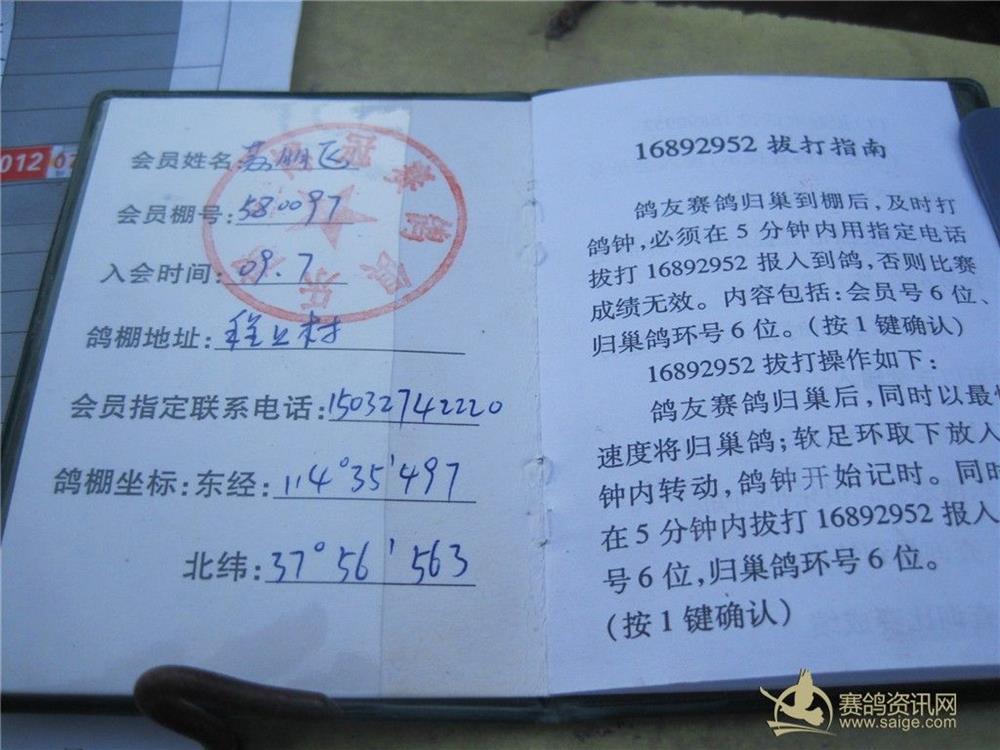 012
会员姓名:苏鹏飞
会员棚号:580097
入会时间:09.7
鸽棚地址:程上村
会员指定联系电话:15032742220
鸽棚坐标:东经:114°35'497
北纬:37°56'563
16892952 拔打指南
鸽友赛鸽归巢到棚后,及时打
鸽钟,必须在5分钟内用指定电话
拔打16892952报入到鸽,否则比赛
成绩无效。内容包括:会员号6位、
归巢鸽环号6位。(按1键确认)
16892952 拔打操作如下:
鸽友赛鸽归巢后,同时以最快
速度将归巢鸽;软足环取下放入
钟内转动,鸽钟开始记时。同时
在5分钟内拔打16892952报入
号6位,归巢鸽环号6位。
(按1键确认)
赛鸽资讯网
www.saige.com